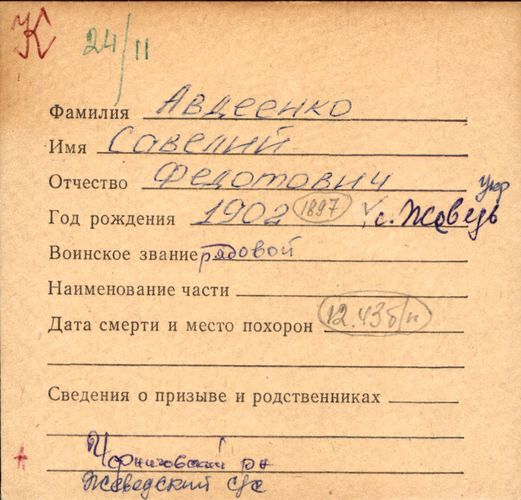 К 24/II
Фамилия Авдеенко
Имя Савелий
Отчество Федотович укр
Год рождения 1902 1897 с. Жеведь
Воинское звание рядовой
Наименование части
Дата смерти и место похорон 12.43 б/п
Сведения о призыве и родственниках
Черниговский рн
Жеведский с/с